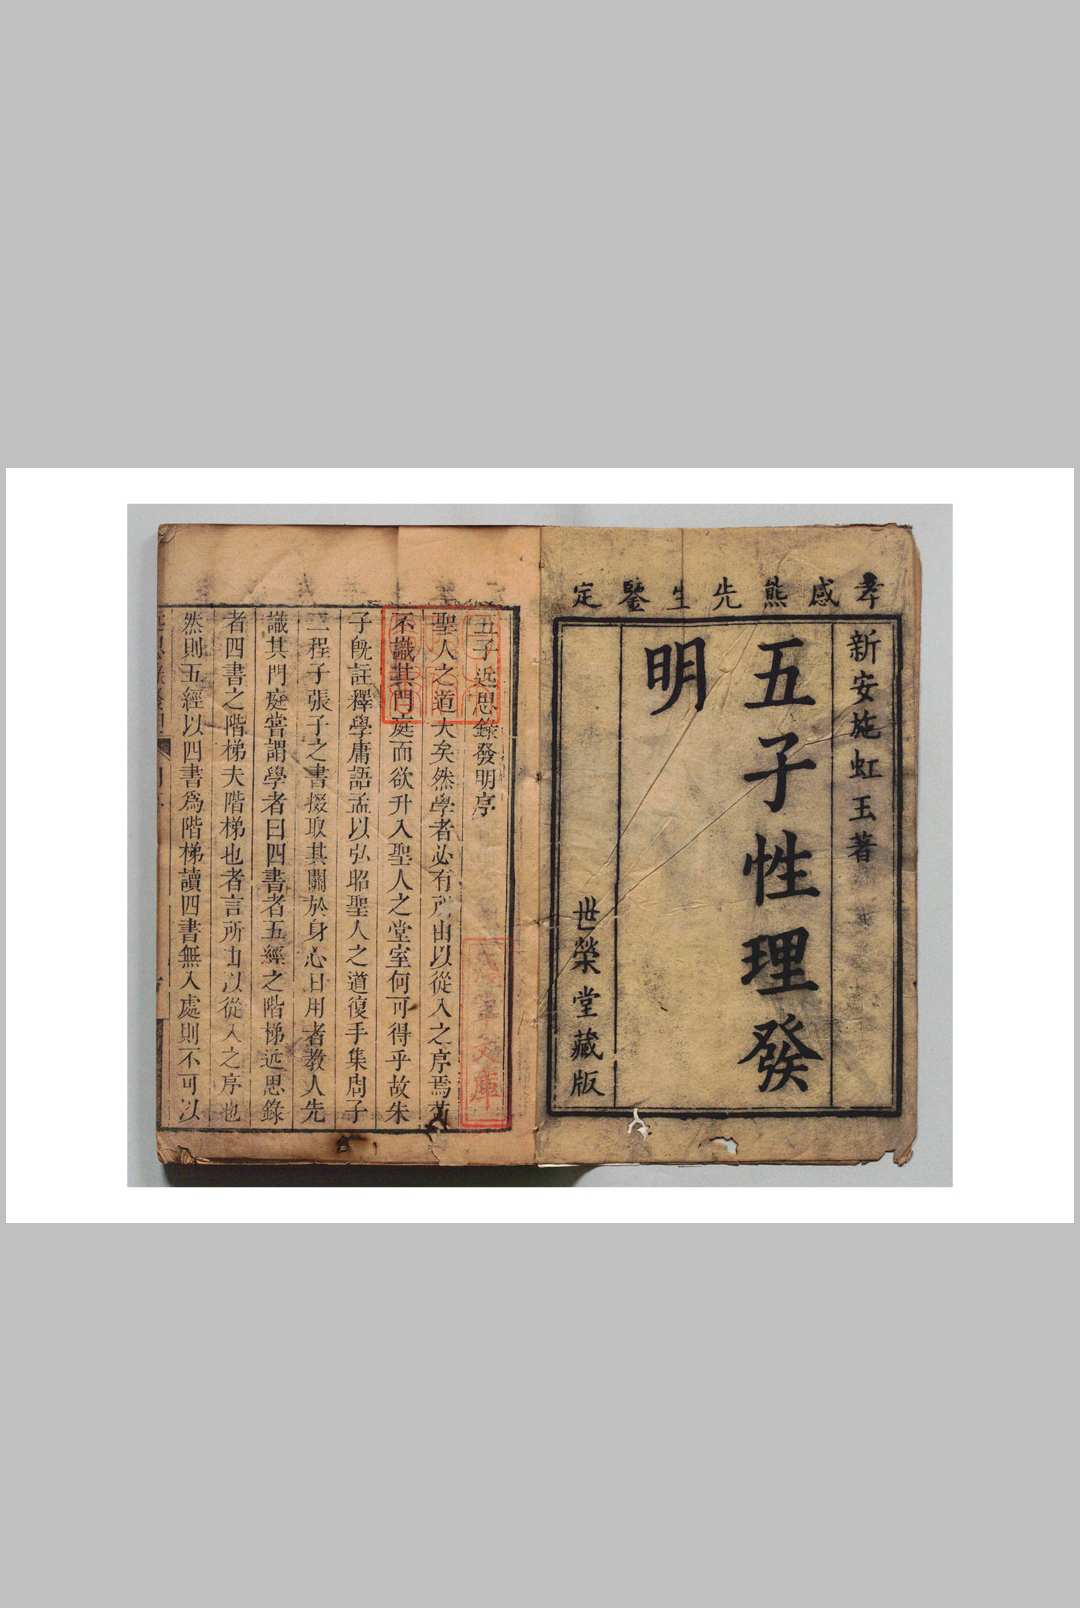 孝感熊先生鑒定
新安施虹玉著
五子性理發
明
世榮堂藏版
五子近思錄發明序
聖人之道大矣然學者必有所由以從入之序焉苟
不識其門庭而欲升入聖人之堂室何可得乎故朱
子旣註釋學庸語孟以弘昭聖人之道復手集周子
二程子張子之書掇取其關於身心日用者教人先
識其門庭嘗謂學者曰四書者五經之階梯近思錄
者四書之階梯夫階梯也者言所由以從入之序也
然則五經以四書爲階梯讀四書無入處則不可以
文庫